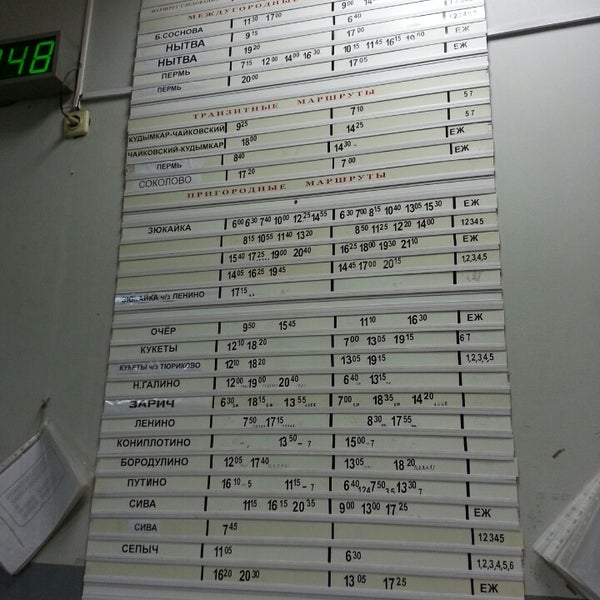 48
МЕЖДУГОРОДНЫЕ
Б.СОСНОВА 11 30 17 00 6 40
НЫТВА 9 15 17 00
НЫТВА 19 20 10 15 11 45 16 15 19 00 ЕЖ
ПЕРМЬ 7 15 12 00 14 00 16 30 17 05 ЕЖ
ПЕРМЬ 20 00
ТРАНЗИТНЫЕ МАРШРУТЫ
КУДЫМКАР-ЧАЙКОВСКИЙ 9 25 7 10 5 7
ЧАЙКОВСКИЙ-КУДЫМКАР 18 00 14 25 5 7
ПЕРМЬ 8 40 14 30 ЕЖ
СОКОЛОВО 17 20 7 00 ЕЖ
ПРИГОРОДНЫЕ МАРШРУТЫ
ЗЮКАЙКА 6 00 6 30 7 40 10 00 12 25 14 55 6 30 7 00 8 15 10 40 13 05 15 30 ЕЖ
8 15 10 55 11 40 13 20 8 50 11 25 12 20 14 00 12345
15 40 17 25 19 00 20 40 16 25 18 00 19 30 21 10 ЕЖ
14 05 16 25 19 45 14 45 17 00 20 15 1,2,3,4,5
ЗЮКАЙКА ч/з ЛЕНИНО 17 15
ОЧЁР 9 50 15 45 11 10 16 30 ЕЖ
КУКЕТЫ 12 10 18 20 7 00 13 05 19 15 6 7
КУКЕТЫ ч/з ТЮРИКОВО 12 10 18 20 13 05 19 15 1,2,3,4,5
Н.ГАЛИНО 12 00 19 00 20 40 6 40 13 15
ЗАРИЧ 6 30 18 15 13 55 7 00 18 35 14 20
ЛЕНИНО 7 50 17 15 8 30 17 55
КОНИПЛОТИНО 13 50 - 7 15 00 - 7
БОРОДУЛИНО 12 05 17 40 13 05 18 20
ПУТИНО 16 10 - 5 11 15 - 7 6 40 124 7 50 3,5 13 30 7
СИВА 11 15 16 15 20 35 9 00 13 00 17 25 ЕЖ
СИВА 7 45 12345
СЕПЫЧ 11 05 6 30 1,2,3,4,5,6
16 20 20 30 13 05 17 25 ЕЖ